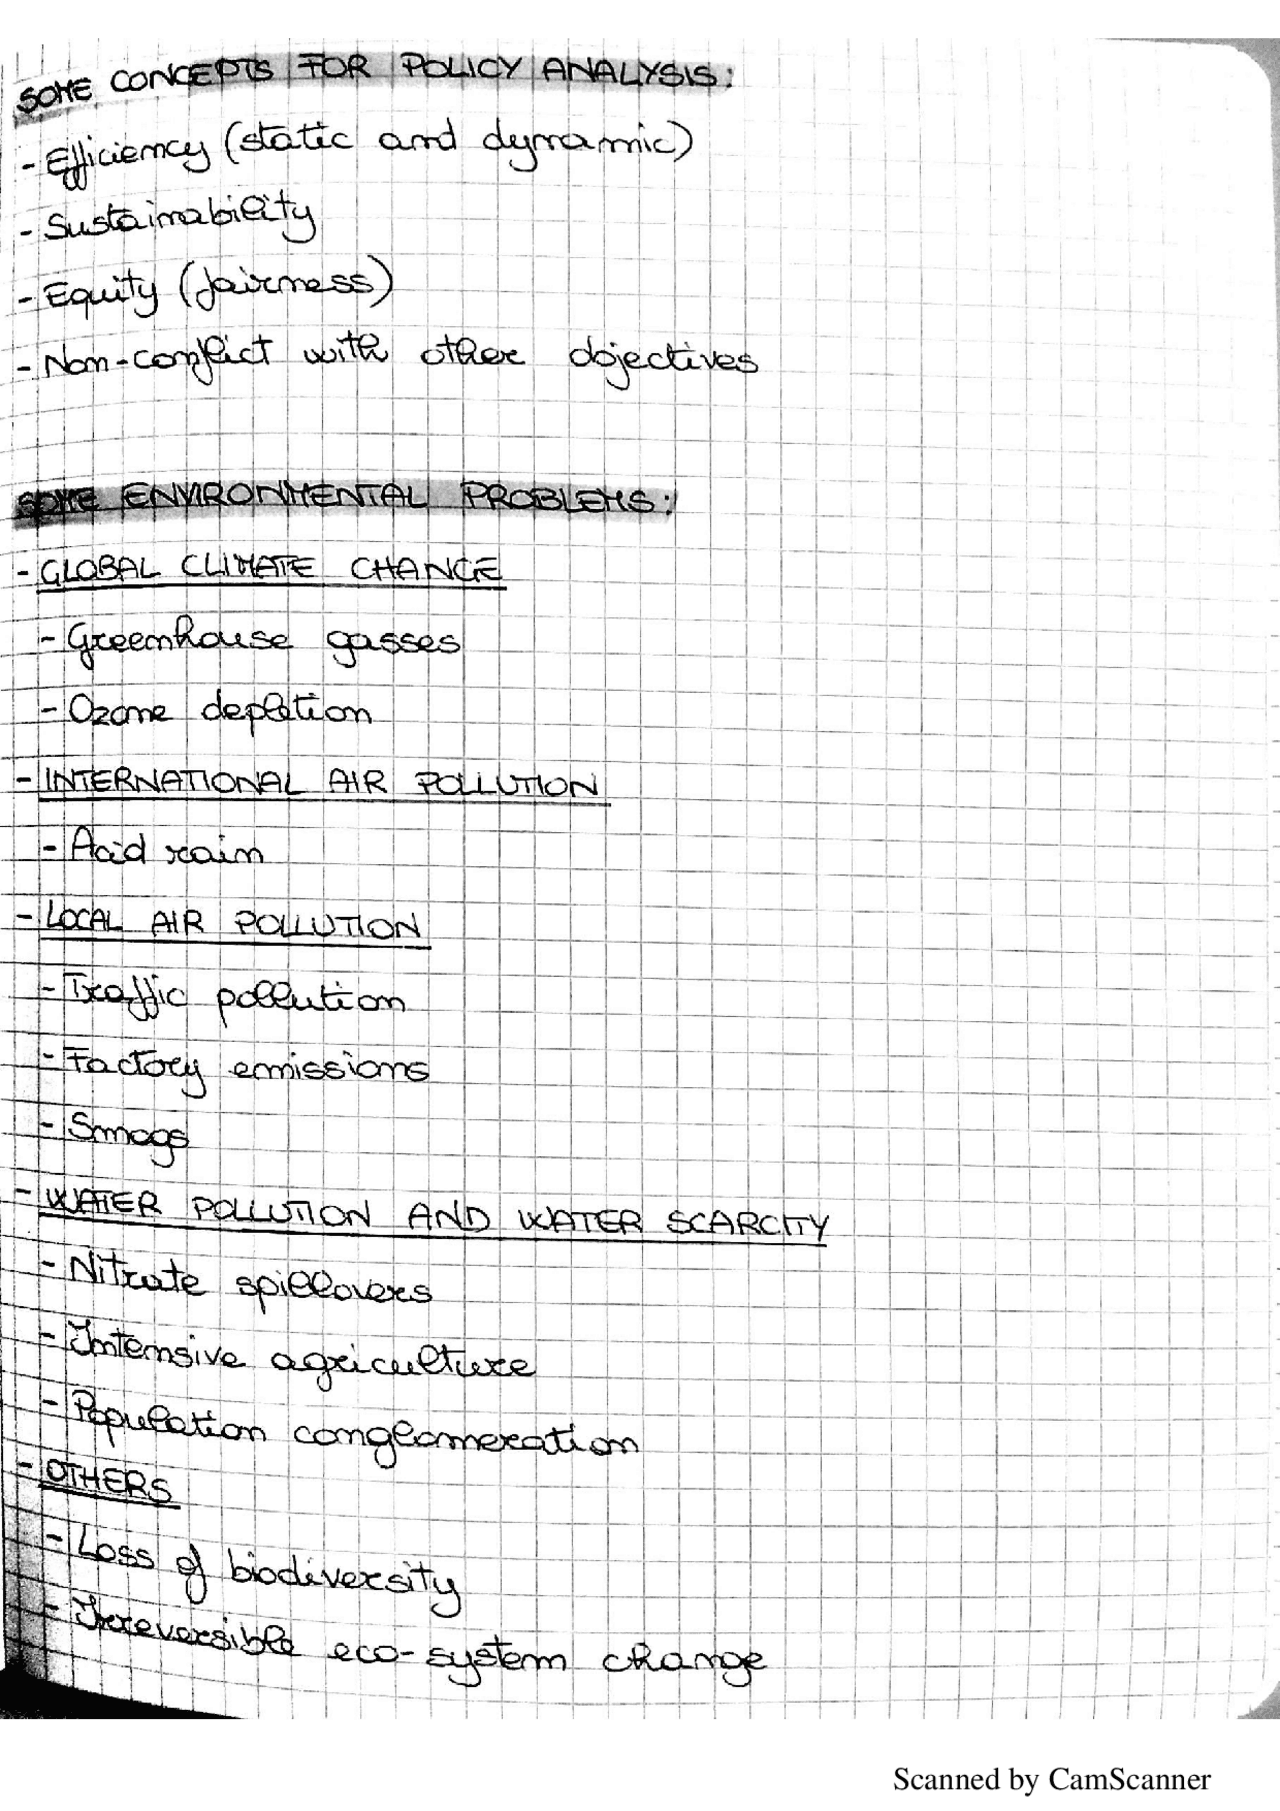 SOME CONCEPTS FOR POLICY ANALYSIS:
- Efficiency (static and dynamic)
- Sustainability
- Equity (fairness)
- Non-conflict with other objectives
SOME ENVIRONMENTAL PROBLEMS:
- GLOBAL CLIMATE CHANGE
- Greenhouse gasses
- Ozone depletion
- INTERNATIONAL AIR POLLUTION
- Acid rain
- LOCAL AIR POLLUTION
- Traffic pollution
- Factory emissions
- Smogs
- WATER POLLUTION AND WATER SCARCITY
- Nitrate spillovers
- Intensive agriculture
- Population conglomeration
- OTHERS
- Loss of biodiversity
- Irreversible eco-system change
Scanned by CamScanner